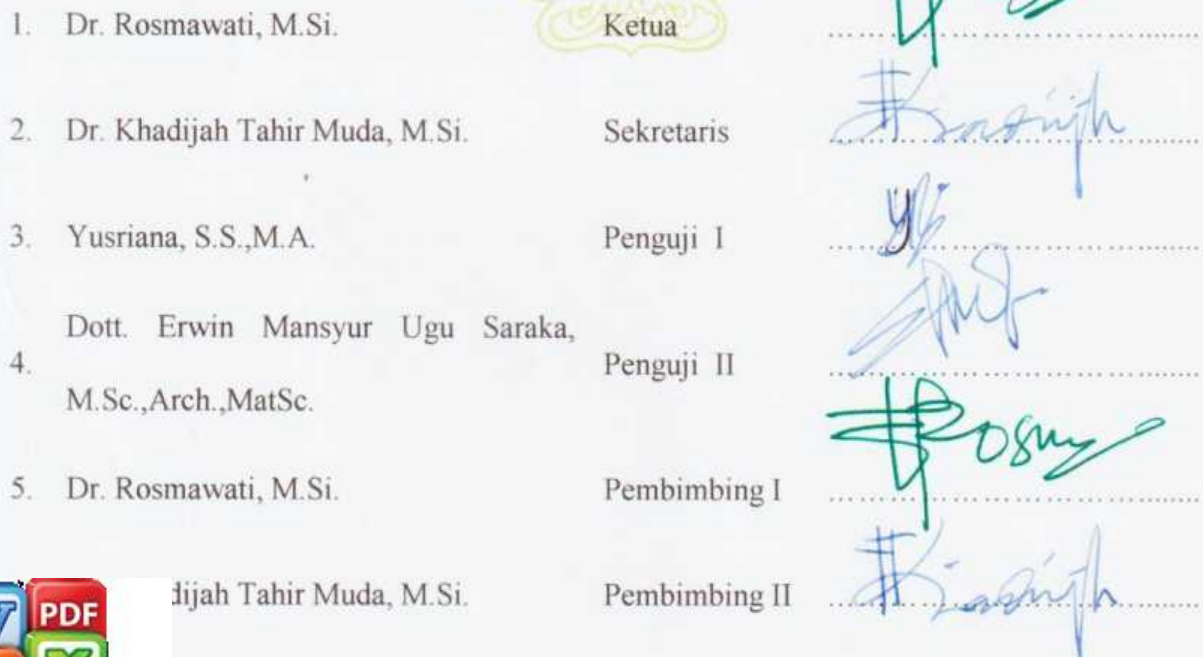 1. Dr. Rosmawati, M.Si. Ketua ........................
2. Dr. Khadijah Tahir Muda, M.Si. Sekretaris ........................
3. Yusriana, S.S.,M.A. Penguji I ........................
Dott. Erwin Mansyur Ugu Saraka,
4. Penguji II ........................
M.Sc.,Arch.,MatSc.
5. Dr. Rosmawati, M.Si. Pembimbing I ........................
dijah Tahir Muda, M.Si. Pembimbing II ........................
PDF